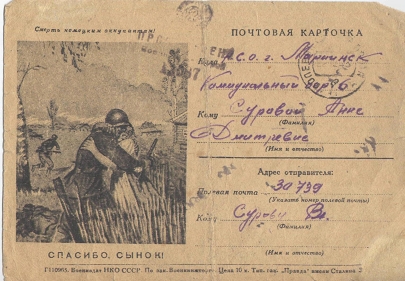 Смерть немецким оккупантам!
ПОЧТОВАЯ КАРТОЧКА
Куда Н.С.О. г. Мариинск
Кому Суровой Анне
(Фамилия)
Дмитревне
(Имя и отчество)
Адрес отправителя:
Полевая почта 39799
(Указать номер полевой почты)
Кат Сурова Вл.
(Фамилия)
(Имя и отчество)
СПАСИБО, СЫНОК!
Г110965. Воениздат НКО СССР. По зак. Военкниготорга. Цена 10 к. Тип. газ. „Правда" имени Сталина.